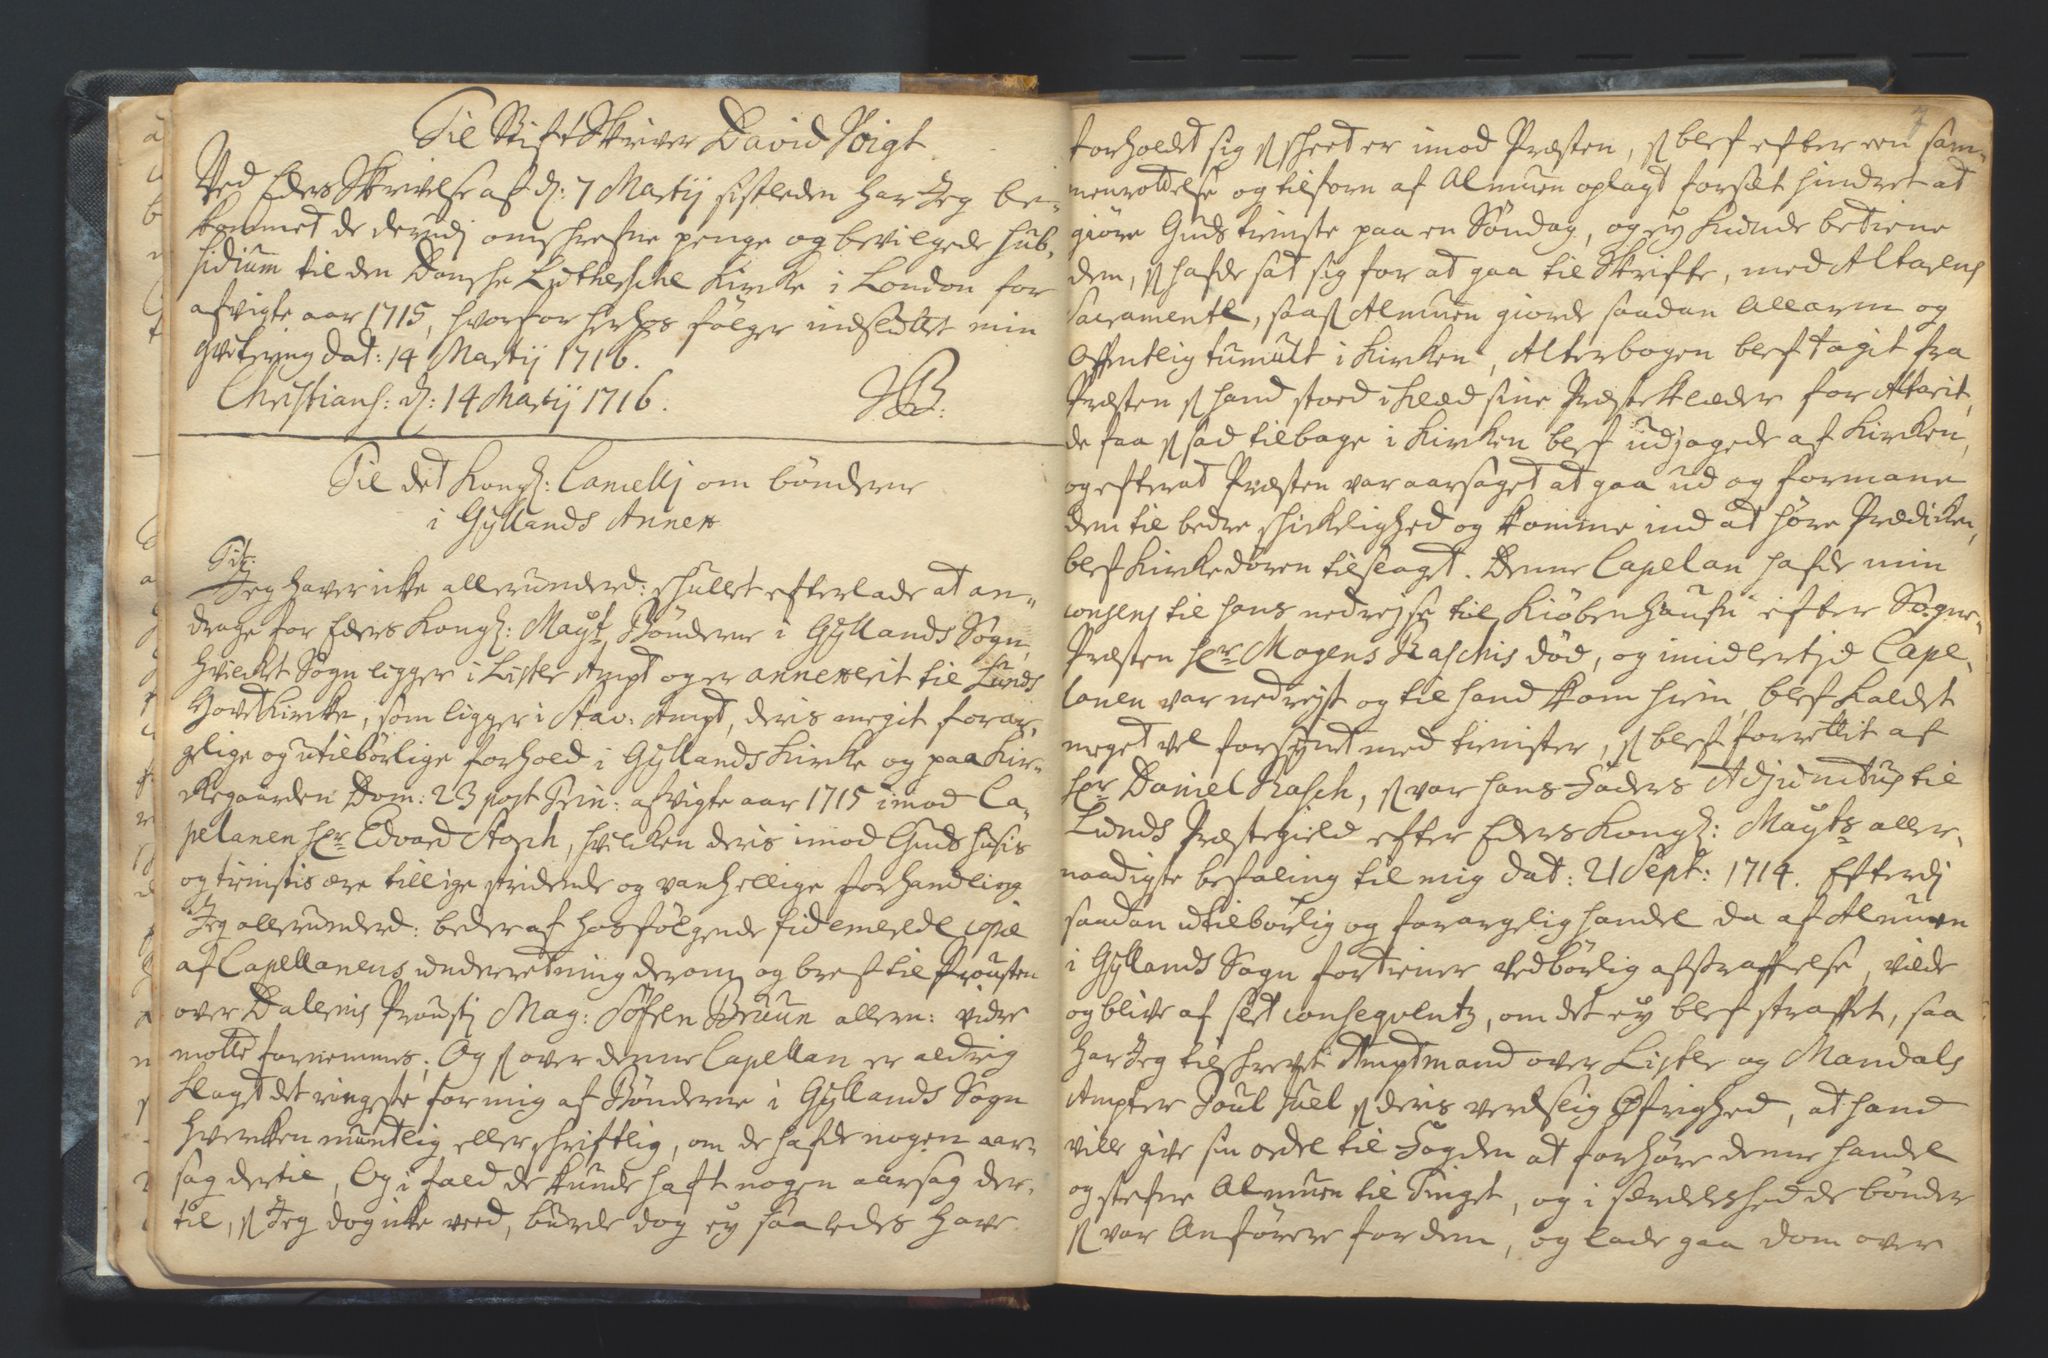 Til StiftSkriver David Voigt
Ved Eders Skrivelse af d: 7 Martij sistleden har Jeg be-
kommet de derudj omskrefne penge og bevilgede sub-
sidium til den Danske Lutherske Kirke i London for
afvigte aar 1715, hvorfor herhos følger indsluttet min
qvitering dat: 14 Martij 1716.
Christians: d: 14 Martij 1716.
Til det Kongl: Cancellj om bønderne
i Gyllands Annex
Tit:
Jeg haver icke allerunderd: skullet efterlade at an-
drage for Eders Kongl: Mayt Bønderne i Gyllands Sogn,
hvilcket Sogn ligger i Lister Ampt og er annexerit til Lunds
HovetKircke, som ligger i Stav: Ampt, deris meget forar-
gelige og utilbørlige forhold i Gyllands Kircke og paa Kir-
ckegaarden Dom: 23 post Trin: afvigte aar 1715 imod Ca-
pelanen Hr Edvard Stoph, hvilcken deris imod Guds huusis
og tienistis ære tillige stridende og vanhellige forhandling
Jeg allerunderd: beder af hosfølgende fidemerede copie
af Capellanens underretning derom og bref til Prousten
over Dalernis Proustj Mag: Søfren Bruun allern: vidre
motte fornemmes; Og s over denne Capellan er aldrig
klaget det ringeste for mig af Bønderne i Gyllands Sogn
hvercken mundtlig eller skriftlig, om de hafde nogen aar-
sag dertil, Og i fald de kunde haft nogen aarsag der-
til, s Jeg dog icke veed, burde dog ey saaledes have
7
forholdt sig s skeet er imod Præsten, s blef efter een sam-
menrottelse og tilforn af Almuen oplagt forsæt hindret at
giøre Guds tieniste paa en Søndag, og ey kunde betiene
dem, s hafde sat sig for at gaa til Skrifte, med Altarens
Sacramente, saas Almuen giorde saadan Allarm og
Offentlig tumult i Kirken, Alterbogen blef tagit fra
Præsten s hand stoed iklæd sine Præsteklæder for Altarit,
de faa s sad tilbage i Kirken blef udjagede af Kirken,
og efterat Præsten var aarsaget at gaa ud og formane
dem til bedre skickelighed og komme ind at høre Prædicken,
blef Kirkedøren tilslaget. Denne Capelan hafde min
consens til hans nedrejse til Kiøbenhaufn efter Sogne-
Præsten Hr Mogens Raschis død, og imidlertid Cape-
lanen var nedrejst og til hand kom hiem, blef Kaldet
meget vel forsynet med tienister, s blef forrettit af
Hr Daniel Rasch, s var hans Faders Adjunctus til
Lunds Præstegield efter Eders Kongl: Mayts aller-
naadigste befaling til mig dat: 21 Sept: 1714. Efterdj
saadan utilbørlig og forargelig handel da af Almuen
i Gyllands Sogn fortiener vedbørlig afstraffelse, vilde
og blive af slet conseqventz, om det ey blef straffet, saa
har Jeg tilskrevet Amptmand over Lister og Mandals
Ampter Poul Juel s deris verdslig Øfrighed, at hand
ville give sin ordre til Fogden at forhøre denne handel
og stefne Almuen til Tinget, og i særdelshed de bønder
s var Anførere for dem, og lade gaa dom over